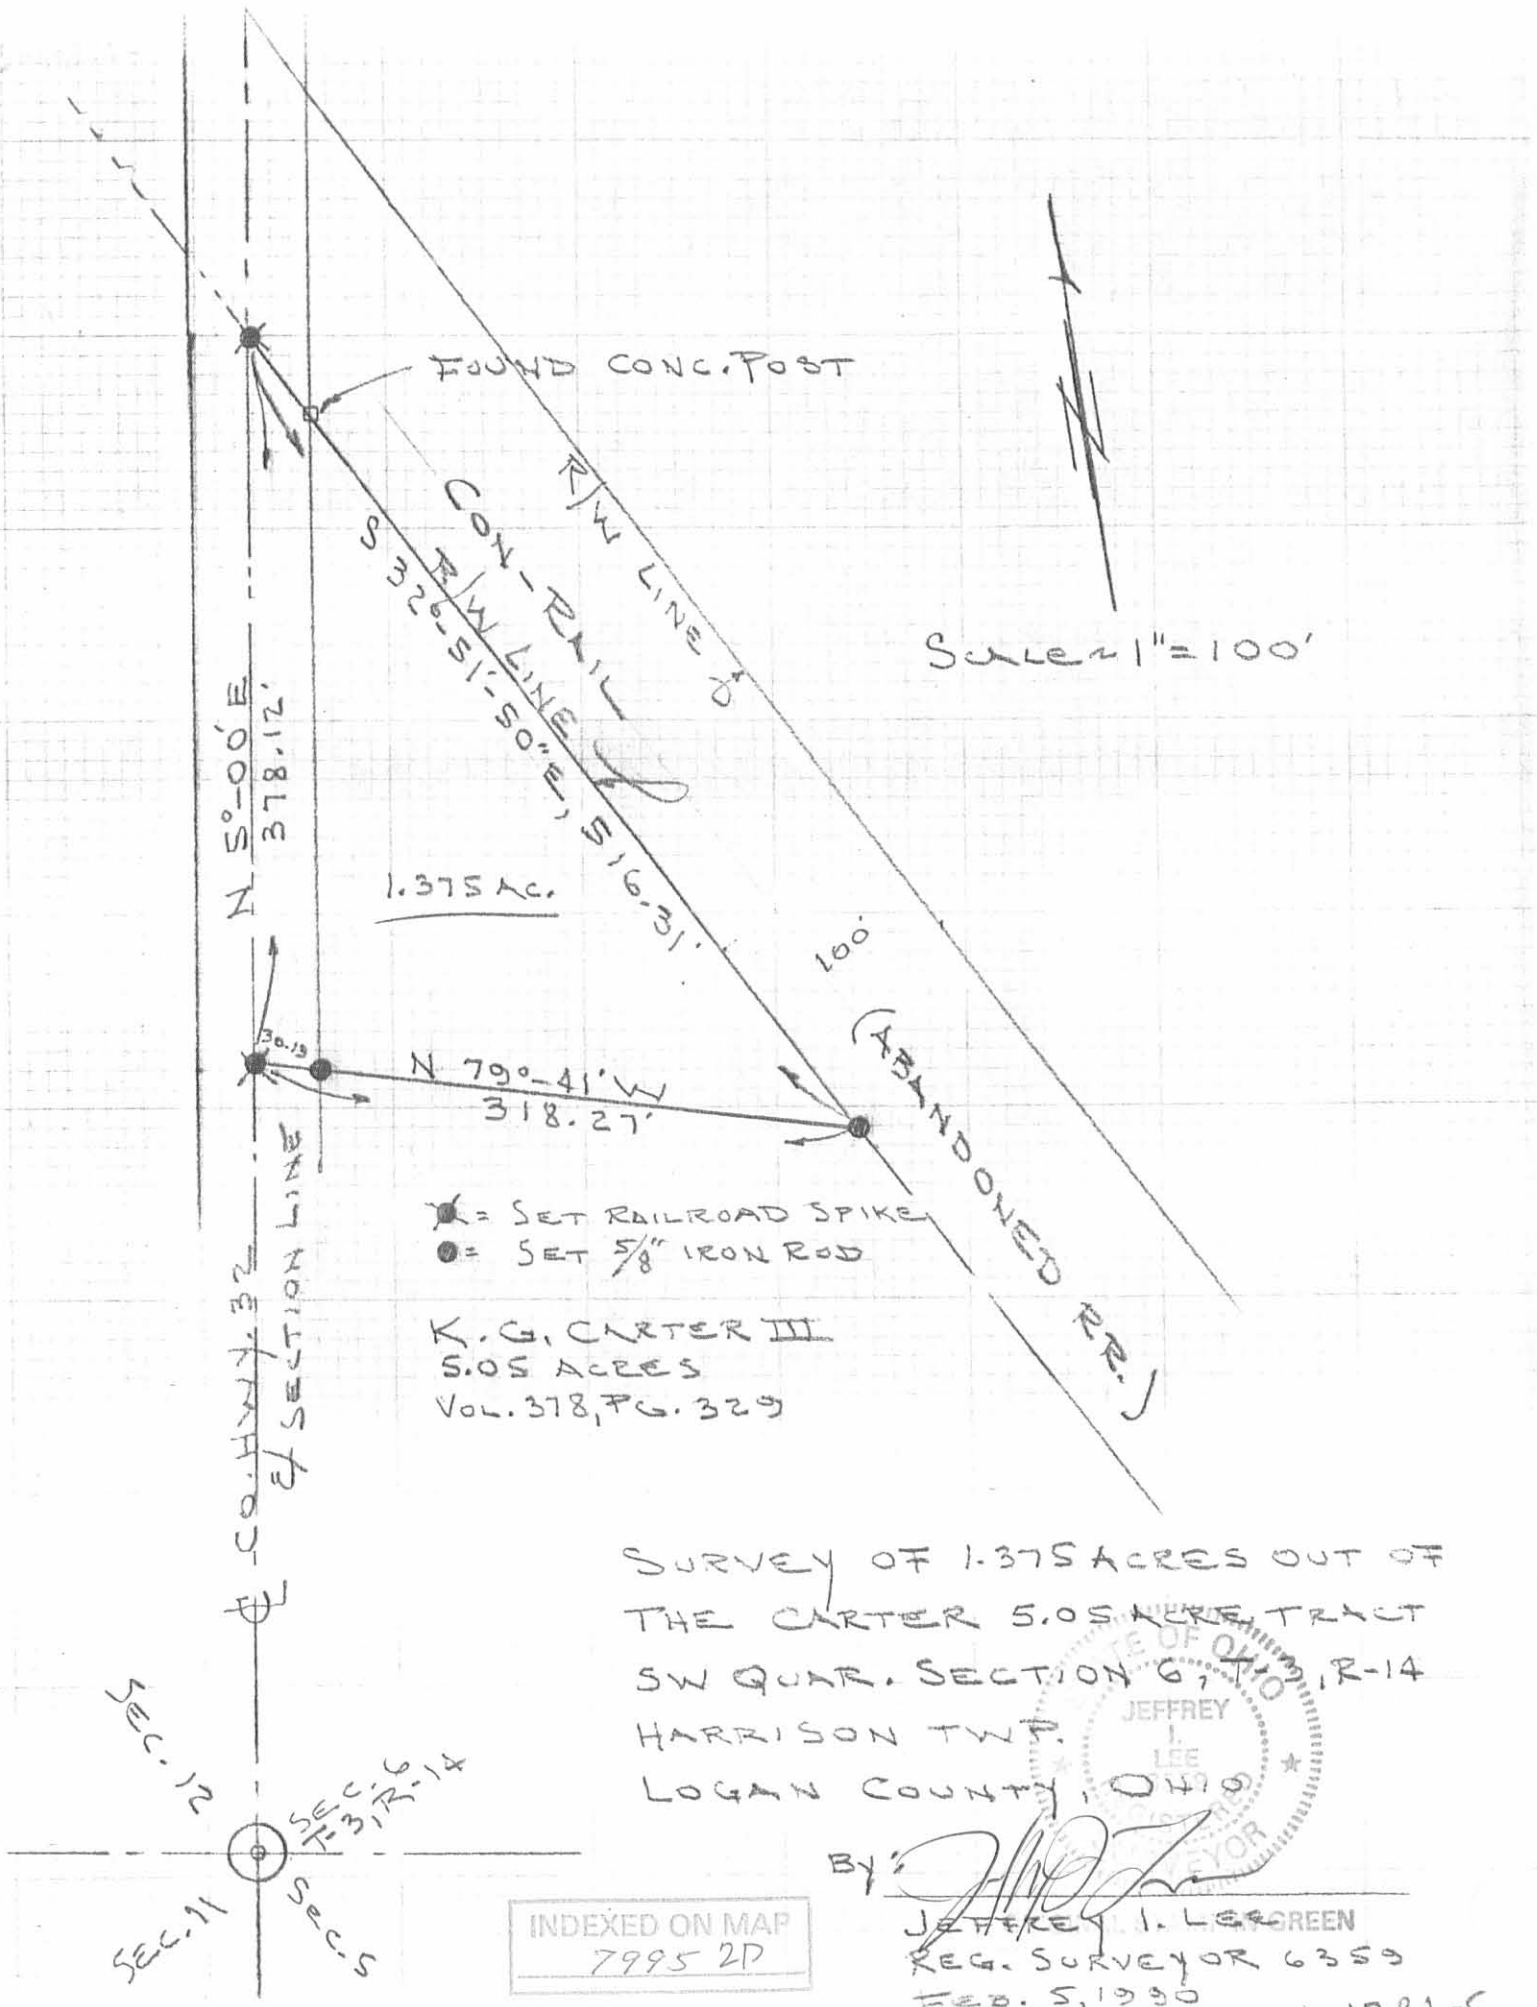 FOUND CONC. POST
R/W LINE
CON-RAIL
R/W LINE
S 32°-51'-50"E, 516.31'
Scale ~ 1"=100'
N 5°-00' E
378.12'
1.375 AC.
100'
(ABANDONED R.R.)
30.19
N 79°-41' W
318.27'
= SET RAILROAD SPIKE
= SET 5/8" IRON ROD
K. G. CARTER III
5.05 ACRES
VOL. 378, PG. 329
CO. HWY. 32
& SECTION LINE
SURVEY OF 1.375 ACRES OUT OF
THE CARTER 5.05 ACRE TRACT
SW QUAR. SECTION 6, T-3, R-14
HARRISON TWP.
LOGAN COUNTY, OHIO
STATE OF OHIO
JEFFREY
I.
LEE
6359
REGISTERED
SURVEYOR
SEC. 12
SEC. 6
T-3, R-14
SEC. 11
SEC. 5
By:
JEFFREY I. LEE
REG. SURVEYOR 6359
FEB. 5, 1990
GREEN
INDEXED ON MAP
7995 2D